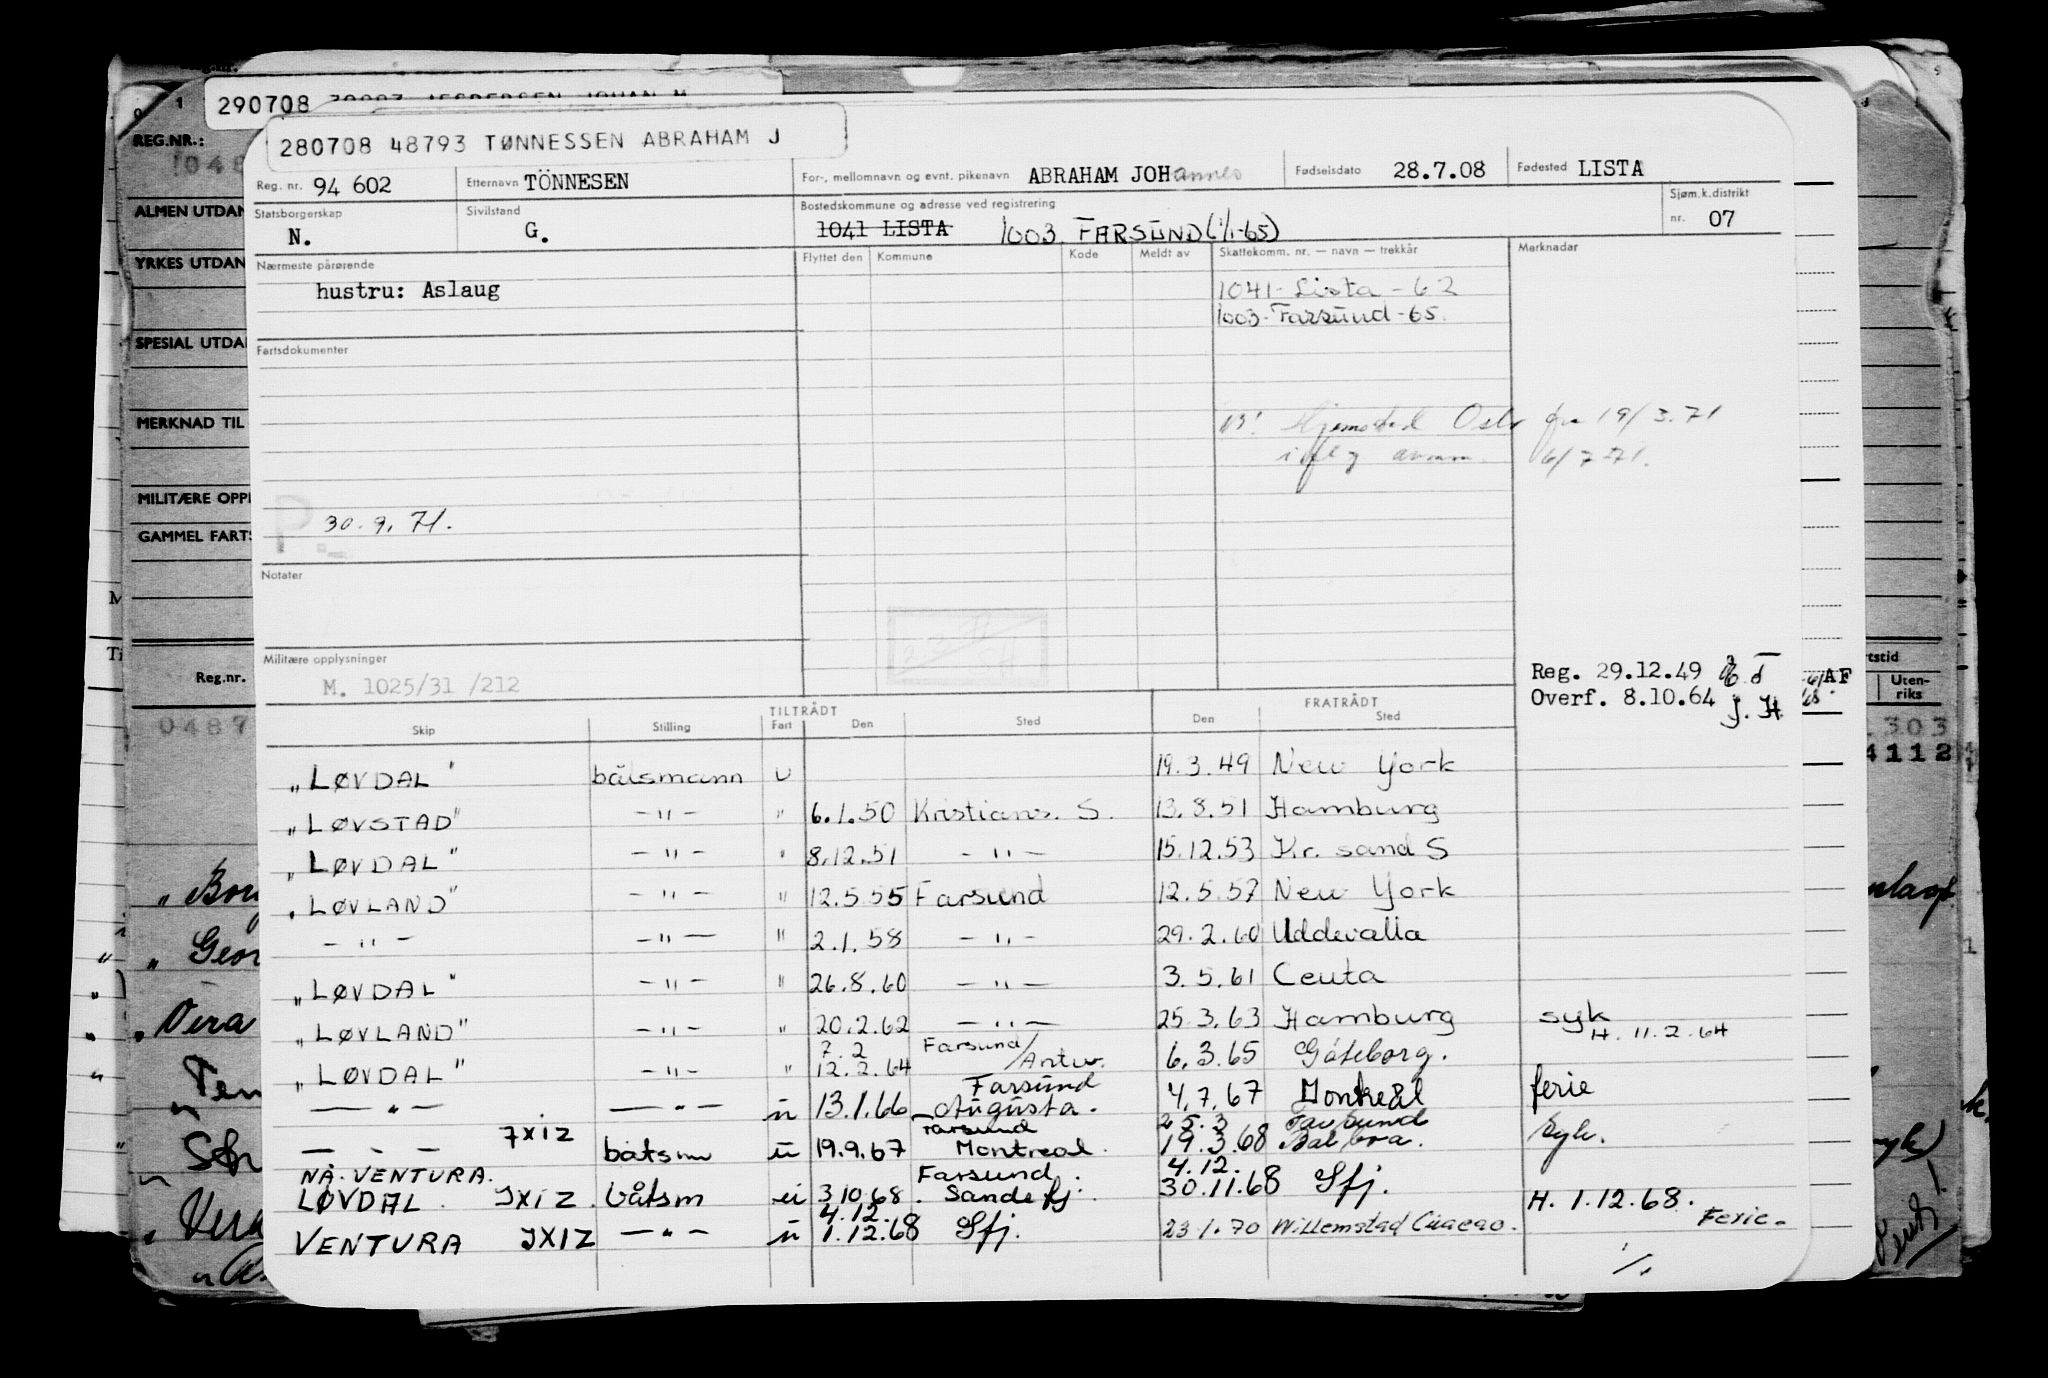 290708
280708 48793 TØNNESSEN ABRAHAM J
REG.NR.:
Reg. nr. 94 602 Etternavn TÖNNESEN For-, mellomnavn og evnt. pikenavn ABRAHAM JOHannes Fødselsdato 28.7.08 Fødested LISTA
ALMEN UTDAN
Statsborgerskap N. Sivilstand G. Bostedskommune og adresse ved registrering 1041 LISTA 1003 FARSUND (1/1-65) Sjøm.k.distrikt nr. 07
YRKES UTDAN
Nærmeste pårørende Flyttet den Kommune Kode Meldt av Skattekomm. nr. — navn — trekkår Merknadar
hustru: Aslaug 1041 - Lista - 62
1003 - Farsund - 65.
SPESIAL UTDA
Fartsdokumenter
MERKNAD TIL
Hjemsted Oslo fra 19/3.71
6/7 71.
MILITÆRE OPPL
30.9.71.
GAMMEL FARTS
Notater
Militære opplysninger
M. 1025/31 /212
Reg. 29.12.49
Overf. 8.10.64 J. H.
AF
Reg.nr.
Uten-
riks
0487
303
4112
TILTRÅDT FRATRÅDT
Skip Stilling Fart Den Sted Den Sted
"LØVDAL" båtsmann u 19.3.49 New York
"LØVSTAD" -"- " 6.1.50 Kristians. S. 13.8.51 Hamburg
"LØVDAL" -"- " 8.12.51 -"- 15.12.53 Kr. sand S
"LØVLAND" -"- " 12.5.55 Farsund 12.5.57 New York
-"- -"- " 2.1.58 -"- 29.2.60 Uddevalla
"LØVDAL" -"- " 26.8.60 -"- 3.5.61 Ceuta
"LØVLAND" -"- " 20.2.62 -"- 25.3.63 Hamburg syk H. 11.2.64
"LØVDAL" -"- " 7.2 12.2.64 Farsund/Antw. 6.3.65 Göteborg.
-"- -"- u 13.1.66 Farsund Augusta. 4.7.67 Montreal ferie
- - - JXIZ båtsm u 19.9.67 Farsund Montreal. 25.3 19.3.68 Farsund Balboa. syk.
NÅ. VENTURA.
LØVDAL. JXIZ. båtsm u 3.10.68. Farsund. Sandefj. 4.12. 30.11.68 Sfj. H. 1.12.68.
VENTURA JXIZ -"- u 4.12. 1.12.68 Sfj. 23.1.70 Willemstad Curacao. Ferie.